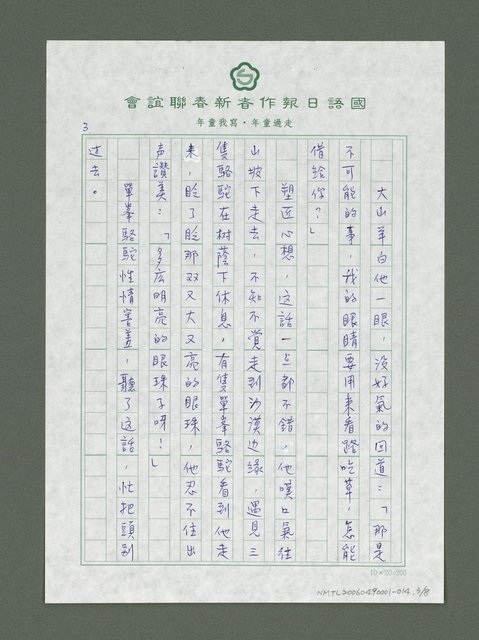 國語日報作者新春聯誼會
走過童年・寫我童年
3
大山羊白他一眼，沒好氣的回道：「那是
不可能的事，我的眼睛要用來看路吃草，怎能
借給你？」
塑匠心想，这話一点都不錯。他嘆口氣往
山坡下走去，不知不覺走到沙漠边緣，遇見三
隻駱駝在树蔭下休息，有隻單峯駱駝看到他走
來，眨了眨那双又大又亮的眼珠，他忍不住出
声讚美：「多広明亮的眼珠子呀！」
單峯駱駝性情害羞，聽了这話，忙把頭别
过去。
10×20=200
NMTL20060490001-014.3/8